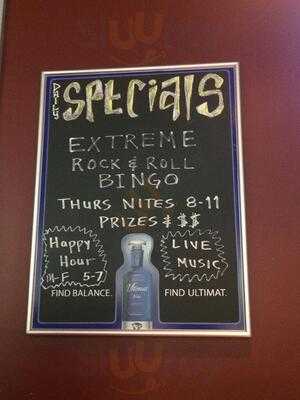 DAILY
SPECIALS
EXTREME
ROCK & ROLL
BINGO
THURS NITES 8-11
PRIZES & $$
Happy
Hour
M-F 5-7
LIVE
MUSIC
Ultimat
FIND BALANCE.
FIND ULTIMAT.